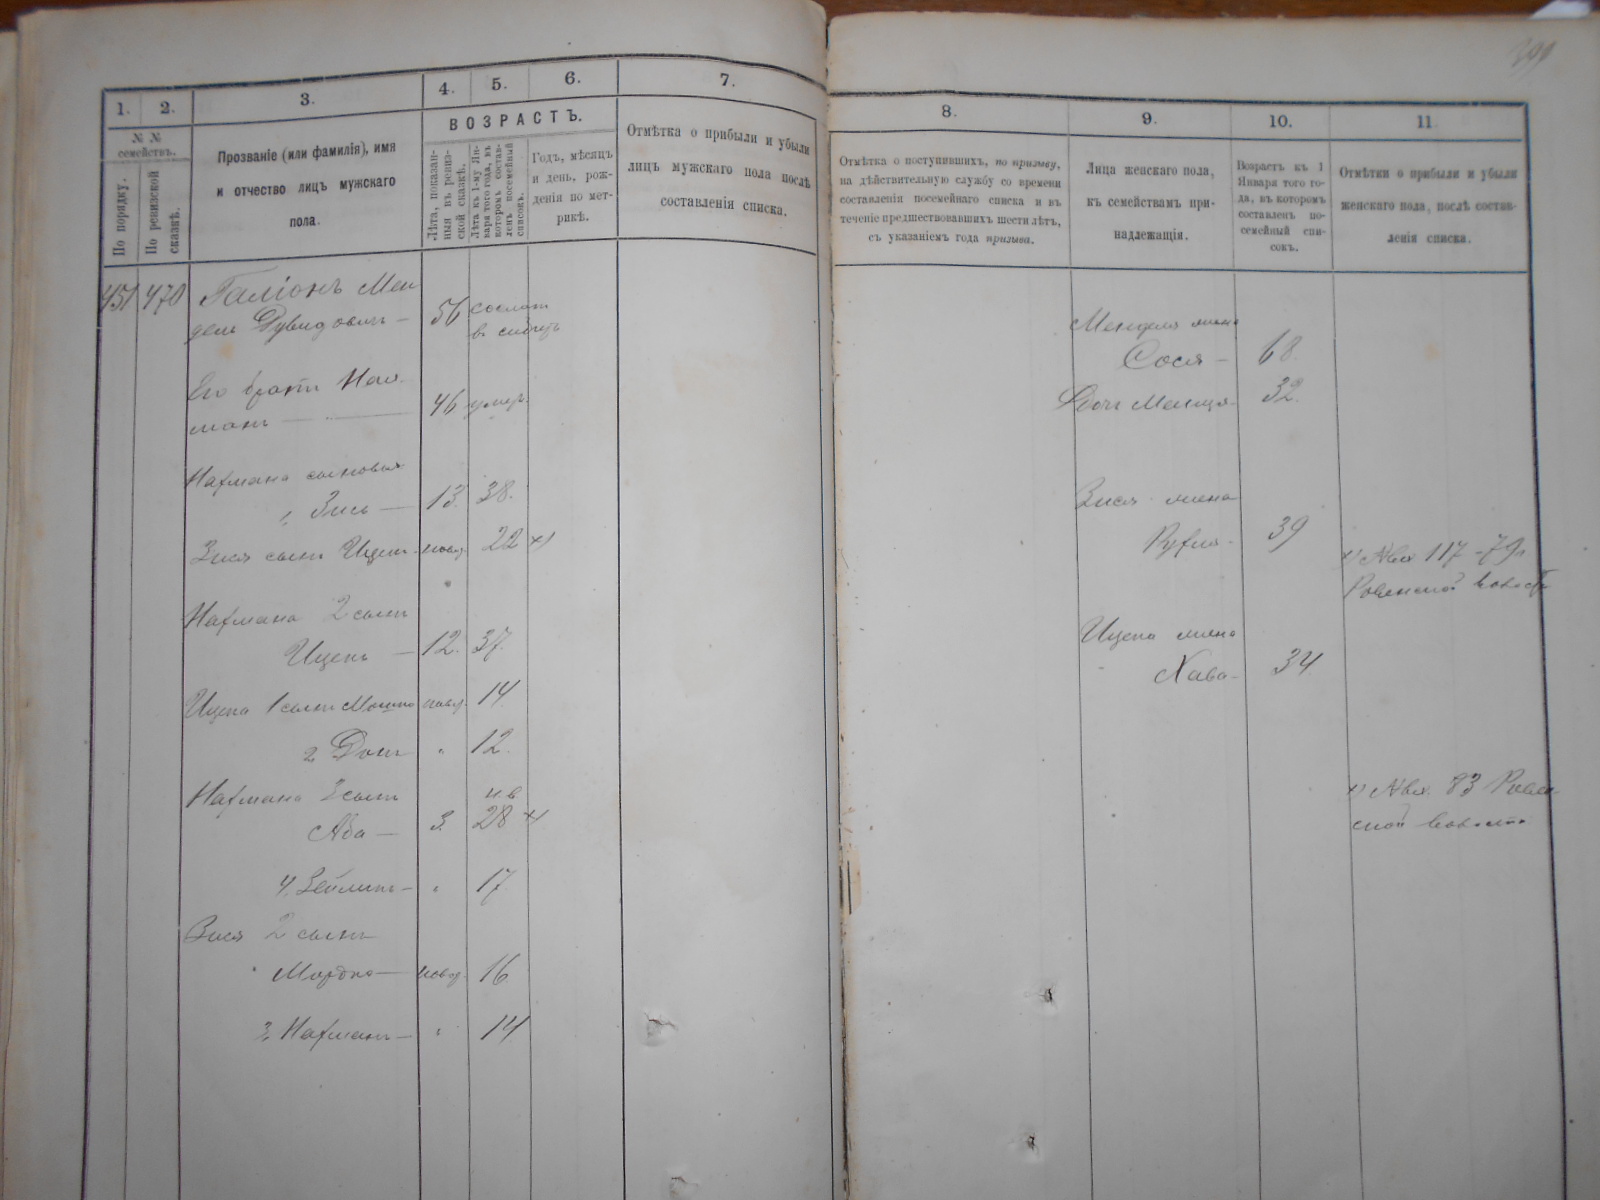 1. 2. 3. 4. 5. 6. 7.
№ №
семействъ.
По порядку.
По ревизской
сказкѣ.
Прозваніе (или фамилія), имя
и отчество лицъ мужскаго
пола.
ВОЗРАСТЪ.
Лѣта, показан-
ныя въ ревиз-
ской сказкѣ.
Лѣта къ 1-му Ян-
варя того года, въ
которомъ состав-
ленъ посемейный
списокъ.
Годъ, мѣсяцъ
и день, рож-
денія по мет-
рикѣ.
Отмѣтка о прибыли и убыли
лицъ мужскаго пола послѣ
составленія списка.
451 470 Галіонъ Мен
дель Дувидовичъ — 56
в сибирь
Его братъ Нах
манъ — 46 умер.
Нахмана сыновья
1, Зись — 13. 38.
Зися сынъ Ицекъ новор. 22 х)
Нахмана 2 сынъ
Ицекъ — 12. 37.
Ицека 1 сынъ Мошко новор. 14.
2, " 12.
Нахмана 3 сынъ
Аба — 3. 28 х)
4, Зейликъ — " 17.
Зися 2 сынъ
Мордко — новор. 16
3, Нахманъ — " 14
8. 9. 10. 11.
Отмѣтка о поступившихъ, по призыву,
на дѣйствительную службу со времени
составленія посемейнаго списка и въ
теченіе предшествовавшихъ шести лѣтъ,
съ указаніемъ года призыва.
Лица женскаго пола,
къ семействамъ при-
надлежащія.
Возрастъ къ 1
Января того го-
да, въ которомъ
составленъ по-
семейный спи-
сокъ.
Отмѣтки о прибыли и убыли
женскаго пола, послѣ состав-
ленія списка.
Менделя жена
Сося — 68.
32.
Зися жена
39
117 - 79
Ицека жена
Хава — 34.
83